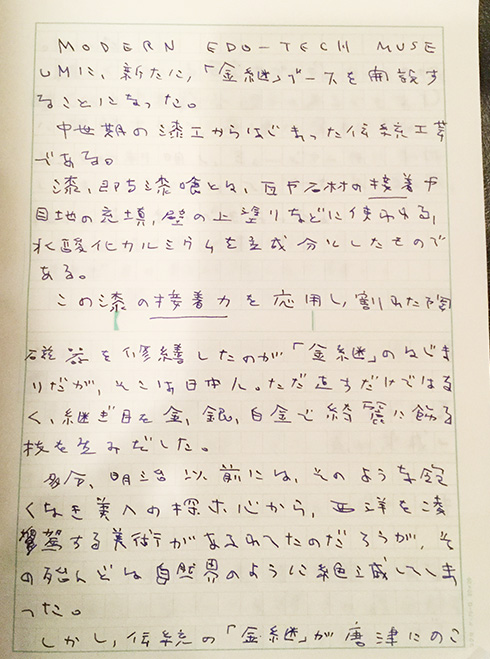 MODERN EDO-TECH MUSE
UMに、新たに、「金継」ブースを開設す
ることになった。
中世期の漆工からはじまった伝統工芸
である。
漆、即ち漆喰とは、瓦や石材の接着や
目地の充填、壁の上塗りなどに使われる、
水酸化カルシウムを主成分としたもので
ある。
この漆の接着力を応用し、割れた陶
磁器を修繕したのが「金継」のはじま
りだが、そこは日本人。ただ直すだけではな
く、継ぎ目を金、銀、白金で綺麗に飾る
技を生みだした。
多分、明治以前には、そのような飽
くなき美への探求心から、西洋を凌
駕する美術があふれてたのだろうが、そ
の殆んどは自然界のように絶滅してしま
った。
しかし、伝統の「金継」が唐津にのこ